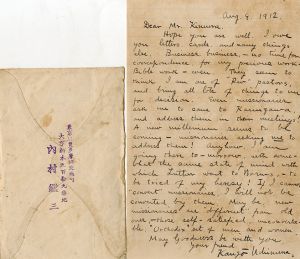 Aug. 9, 1912.
Dear Mr. Kimura:
Hope you are well. I owe
you letters, cards, and many things
else. Business, business, – no time for
correspondence, for my precious work,
Bible work – even. They seem to
think I am one of "Rev." pastors,
and bring all lots of things to me
for decision. Even missionaries
ask me to come to Karuizawa
and address them in their meetings!
A new millennium seems to be
coming – missionaries asking me to
address them! Anyhow, I am
going there to-morrow, with
the same state of mind with
which Luther went to Worms, – to
be tried of my heresy! If I cannot
convert missionaries, I will not be
converted by them. May be, new
missionaries are different from old
ones, whose self-satisfied
the "Orthodox" set of men and women.
May Goodness be with you.
Your friend
Kanzo Uchimura.
内村鑑三